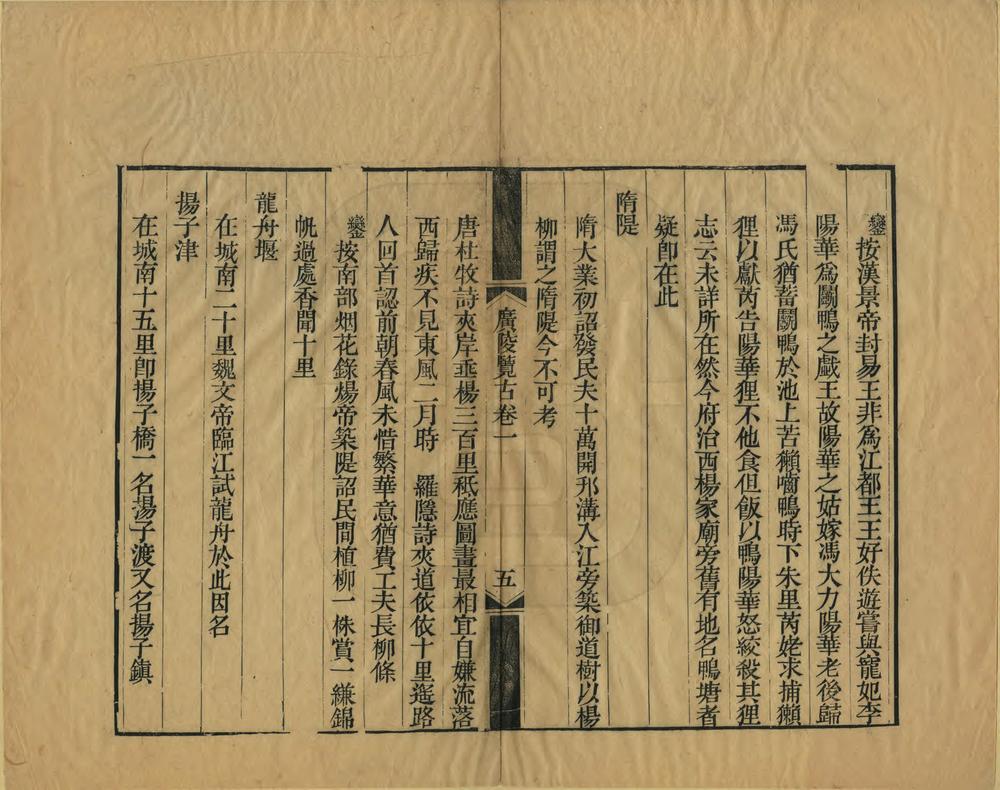 鑾按漢景帝封易王非爲江都王王好佚遊嘗與寵妃李
陽華爲鬭鴨之戲王故陽華之姑嫁馮大力陽華老後歸
馮氏猶蓄鬭鴨於池上苦獺嚙鴨時下朱里芮姥求捕獺
狸以獻芮告陽華狸不他食但飯以鴨陽華怒絞殺其狸
志云未詳所在然今府治西楊家廟旁舊有地名鴨塘者
疑卽在此
隋隄
隋大業初詔發民夫十萬開邗溝入江旁築御道樹以楊
柳謂之隋隄今不可考
廣陵覽古卷一
五
唐杜牧詩夾岸垂楊三百里秪應圖畫最相宜自嫌流落
西歸疾不見東風二月時 羅隱詩夾道依依十里遙路
人回首認前朝春風未惜繁華意猶費工夫長柳條
鑾按南部烟花錄煬帝築隄詔民間植柳一株賞一縑錦
帆過處香聞十里
龍舟堰
在城南二十里魏文帝臨江試龍舟於此因名
揚子津
在城南十五里卽揚子橋一名揚子渡又名揚子鎮